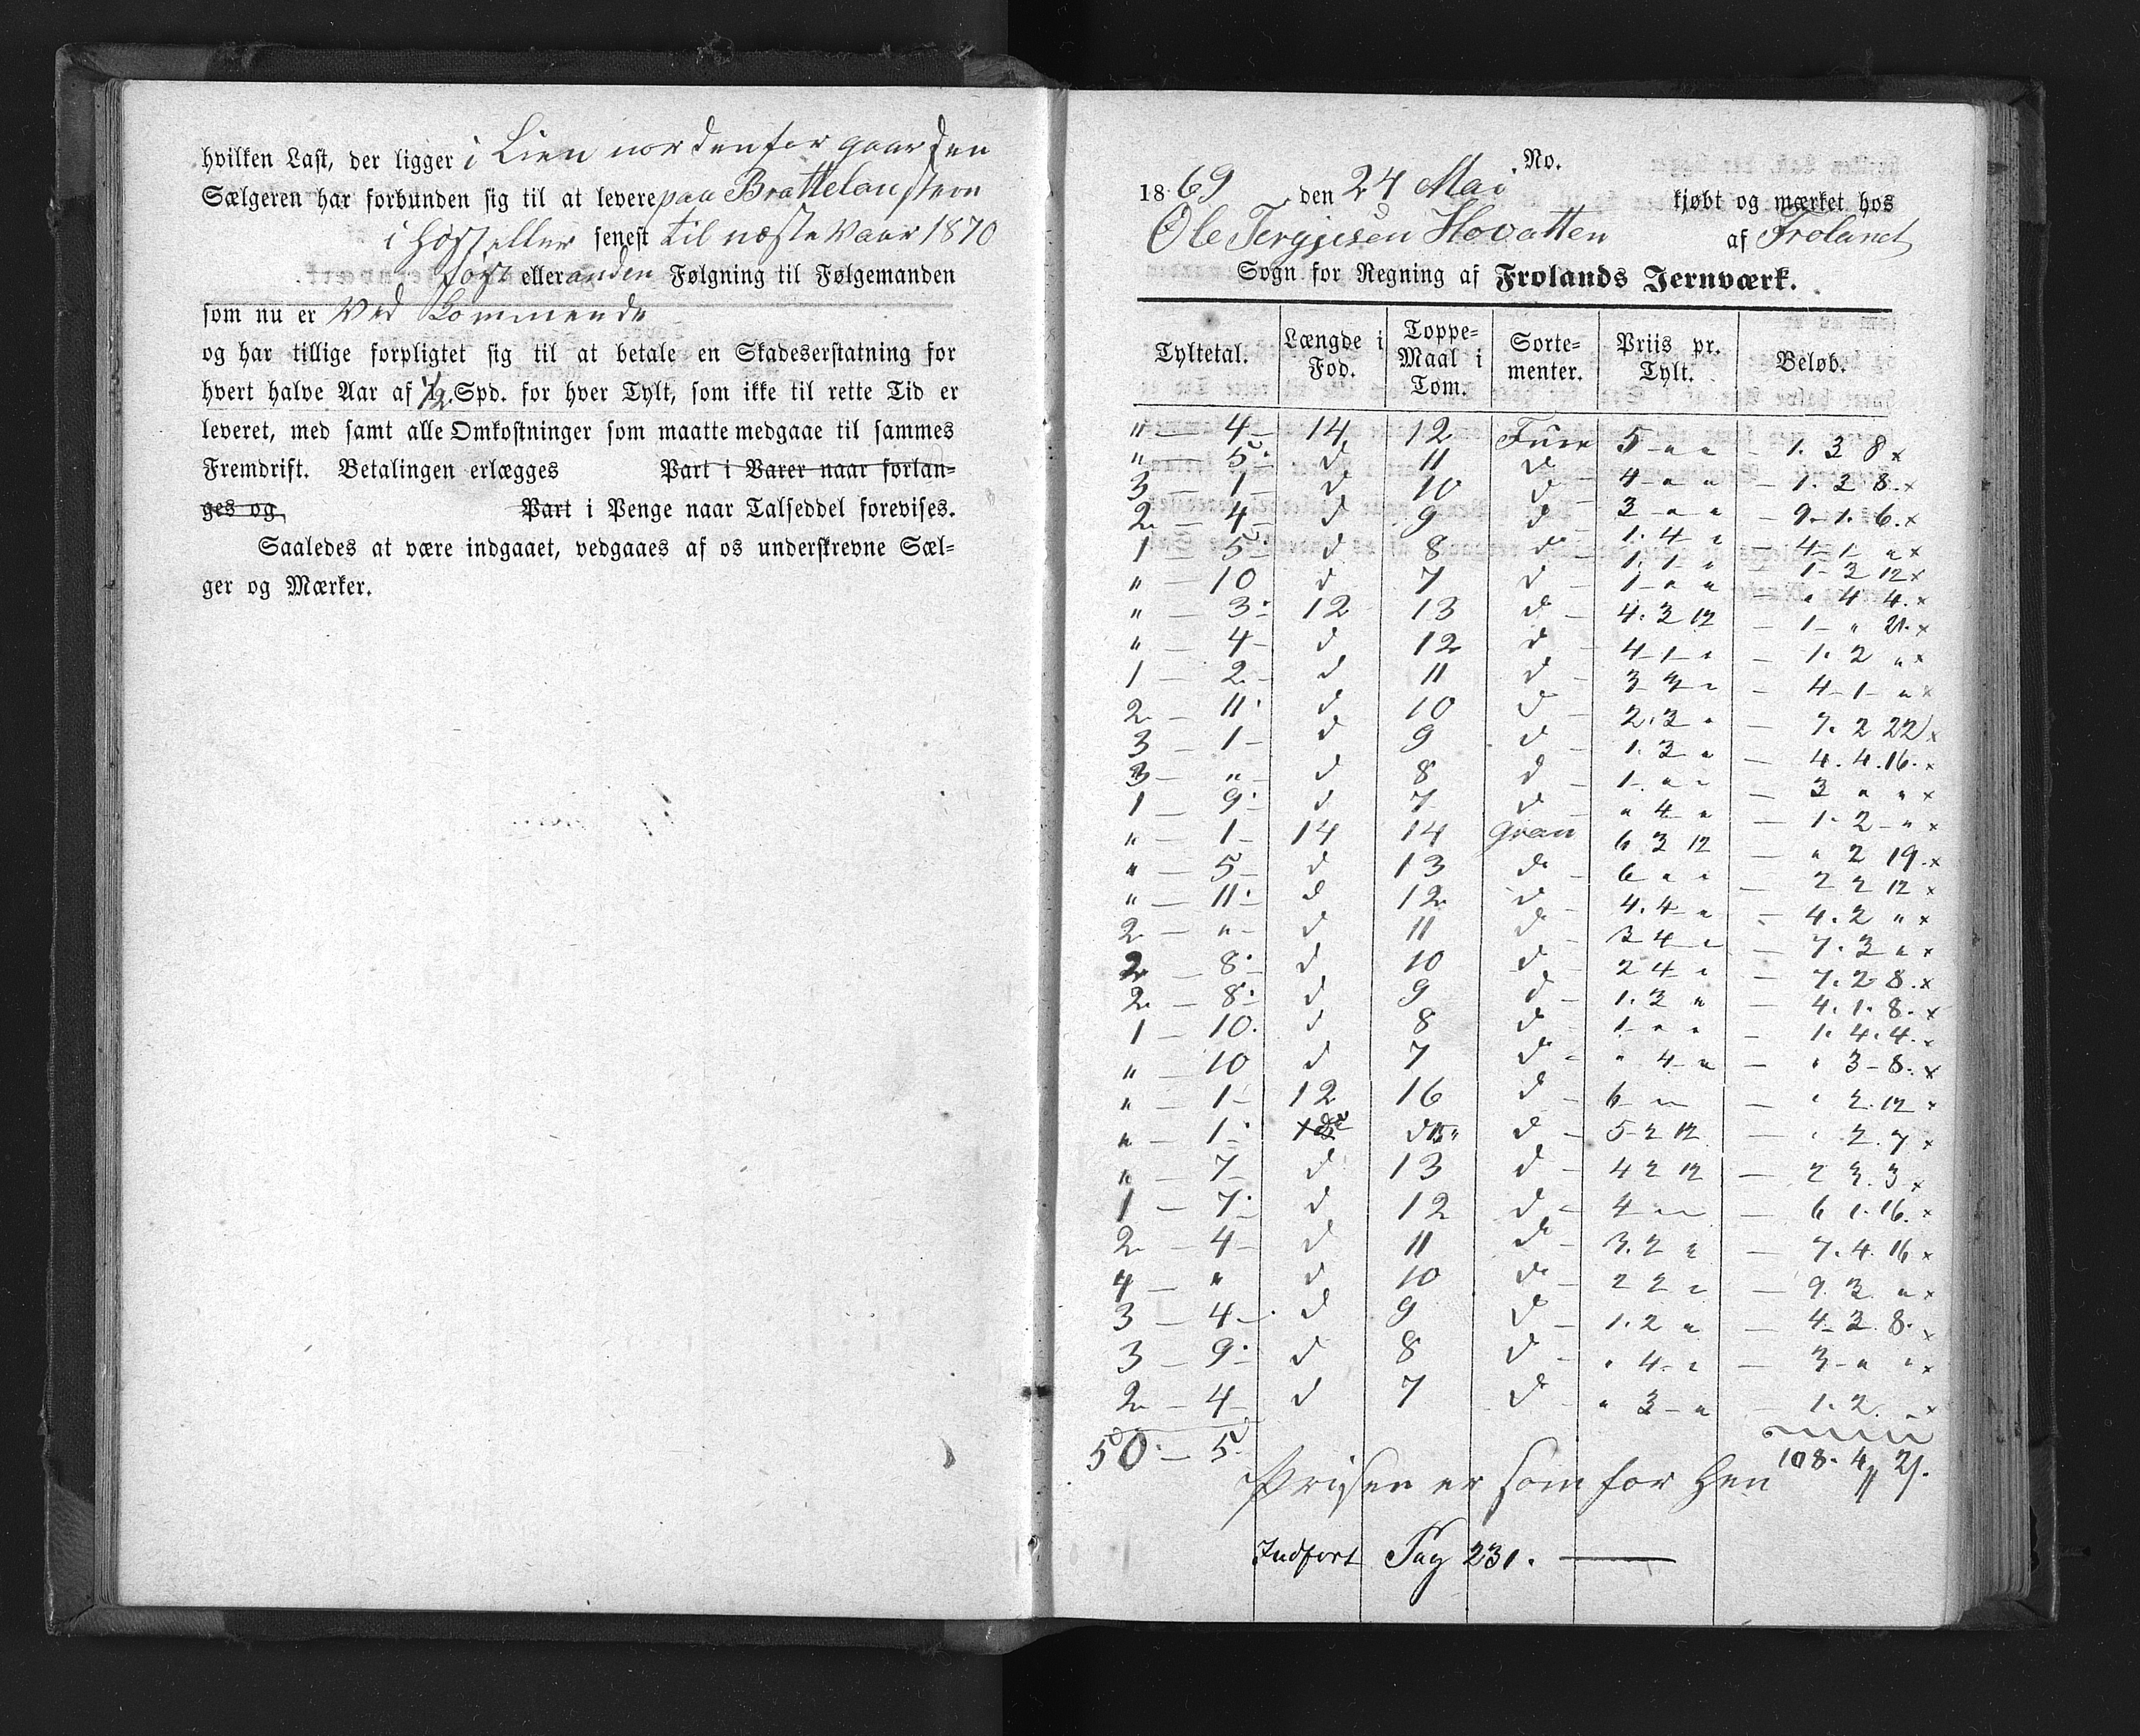 hvilken Last, der ligger i Lien nordenfor gaarden
Sælgeren har forbunden sig til at levere paa Brattelandstron
i Høst eller senest til næste Vaar 1870
først eller anden Følgning til Følgemanden
som nu er Ved Kommende
og har tillige forpligtet sig til at betale en Skadeserstatning for
hvert halve Aar af 1/2 Spd. for hver Tylt, som ikke til rette Tid er
leveret, med samt alle Omkostninger som maatte medgaae til sammes
Fremdrift. Betalingen erlægges Part i Varer naar forlan-
ges og Part i Penge naar Talseddel forevises.
Saaledes at være indgaaet, vedgaaes af os underskrevne Sæl-
ger og Mærker.
No.
1869 den 24 Mai kjøbt og mærket hos
Ole Tergjesen Hovatten af Froland
Sogn for Regning af Frolands Jernværk.
Tyltetal. Længde i Fod. Toppe-Maal i Tom. Sorte-menter. Priis pr. Tylt. Beløb.
" — 4 — 14 12 Furu 5 - " " — 1. 3 8 x
" — 5 — d 11 d 4 - " " — 1. 3 8 x
3 — 1 — d 10 d 3 - " " — 9. 1. 6. x
2 — 4 — d 9 d 1. 4 " — 4 - 1 - " x
1 — 5 — d 8 d 1. 1 - " 1 - 3 12 x
" — 10 d 7 d 1 - " " " 4 4. x
" — 3 — 12 13 d 4. 3 12 — 1 - " 21. x
" — 4 — d 12 d 4 - 1 - " — 1. 2 " x
1 — 2 — d 11 d 3 3 " — 4 - 1 - " x
2 — 11 d 10 d 2. 3 " — 7. 2 22 x
3 — 1 — d 9 d 1. 3 " — 4. 4. 16. x
3 — " — d 8 d 1 - " " — 3 " " x
1 — 9 — d 7 d " 4 " — 1. 2 - " x
" — 1 — 14 14 Gran 6 3 12 — " 2 19. x
" — 5 — d 13 d 6 " " — 2 2 12 x
" — 11 — d 12 d 4. 4 " — 4. 2 " x
2 — " — d 11 d 3 4 - " — 7. 3 " x
2 — 8 — d 10 d 2 4 " — 7. 2 8. x
2 — 8 — d 9 d 1. 3 " — 4. 1. 8. x
1 — 10. d 8 d 1 - " " — 1. 4. 4. x
" — 10 d 7 d " 4 " — " 3 - 8. x
" — 1 — 12 16 d 6 - " " — " 2. 12 x
" — 1 — d 15 d 5 - 2 12 — " 2. 7 x
" — 7 — d 13 d 4 2 12 — 2 3. 3 x
1 — 7 — d 12 d 4 " " — 6 1. 16. x
2 — 4 — d 11 d 3. 2 " — 7. 4. 16 x
4 — " d 10 d 2 2 " — 9 3. " x
3 — 4 — d 9 d 1. 2 " — 4 - 3. 8. x
3 — 9 — d 8 d " 4 - " — 3 - " " x
2 — 4 — d 7 d " 3 - " — 1. 2. " x
50 — 5. 108. 4 21.
Prisen er som for Hen
Indført Pag 231.